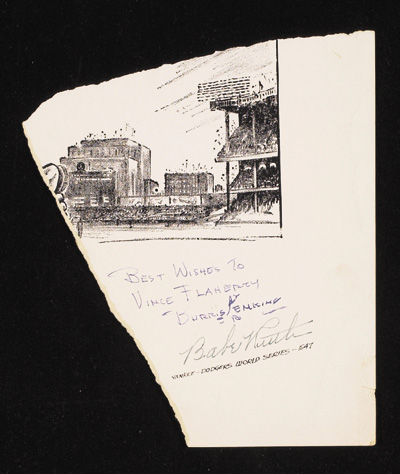 BEST WISHES TO
VINCE FLAHERTY
BURRIS JENKINS
JR
Babe Ruth
YANKEE - DODGERS WORLD SERIES - 1947